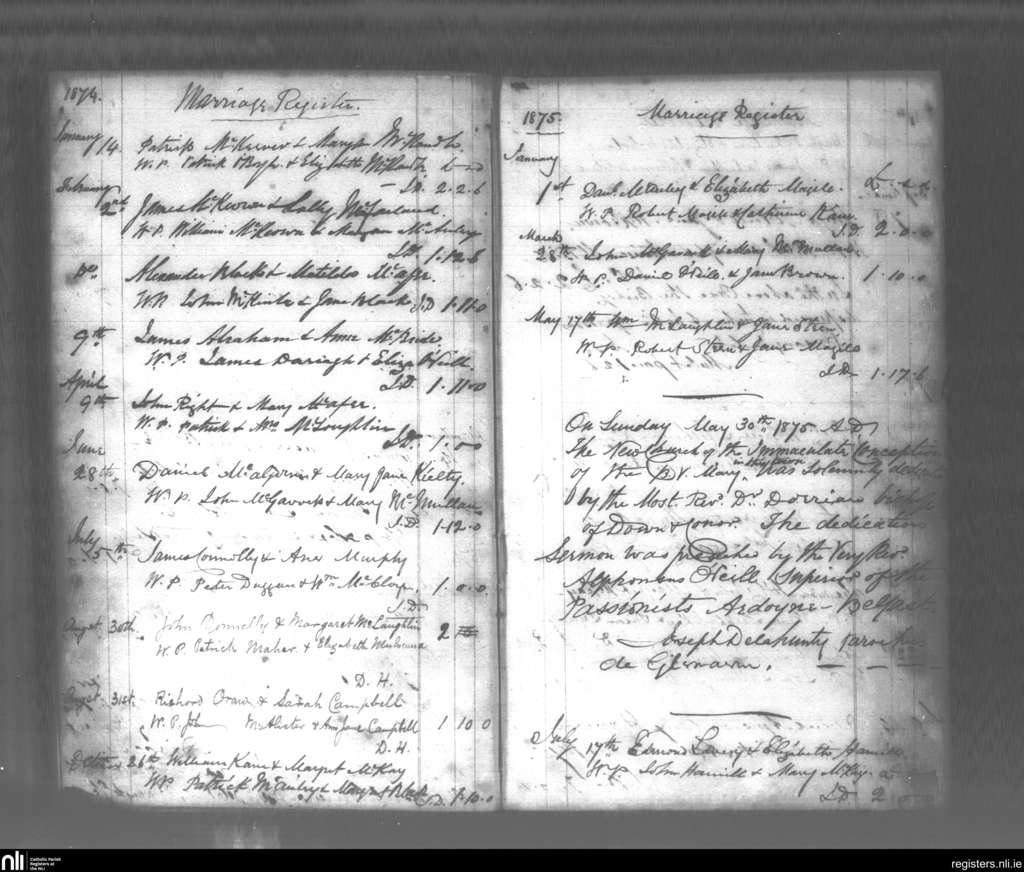 1874.
Marriage Register.
January 14. Patrick McKeever & Mary
W.P. Patrick O'Boyle & Elizabeth
J.D. 2.2.6
February 2nd James McKeown & Sally McFarland.
W.P. William McKeown & McAuley
J.D. 1.12.6
Do. Alexander Black & Matilda McAfee.
W.P. John McKinley & Jane Black. J.D 1.11.0
9th James Abraham & Anne McBride.
W.P. James Darragh & Eliza O'Neill.
J.D. 1.11.0
April 9th John Right & Mary McAfee.
W.P. Patrick & Mrs McLoughlin
J.D. 1.0.0
June
28th. Daniel & Mary Jane Kielty.
W.P. John McGavock & Mary McMullan
J.D. 1.12.0
July
5th James Connolly & Ann Murphy
W.P. Peter Duggan & Wm. 1.0.0
J.D.
August 30th. John Donnelly & Margaret McLaughlin 2
W.P. Patrick Maher & Elizabeth
D.H.
August 31st. Richard & Sarah Campbell
W.P. John McAlister & Ann Jane Campbell 1 10 0
D.H.
October 26th William Kane & Margt McKay
W.P. Patrick & Black J.D. 1.10.0
1875.
Marriage Register
January
1st. Danl McAuley & Elizabeth Magill. £ s d
W.P. Robert Magill & Catherine Kane
J.D. 2.0.0
March
28th John McGavock & Mary McMullan
W.P. Daniel & Jane Brown. 1.10.0
May 17th Wm McLaughlin & Jane Steen
W.P. Robert Steen & Jane Magill
J.D. 1.17.6
On Sunday May 30th 1875 A.D.
The New Church of the Immaculate Conception
of the B.V. Mary, was Solemnly
by the Most Revd. Dr Dorrian bishop
of Down & Conor. The dedication
Sermon was preached by the Very Revd.
Alphonsus O'Neill Superior of the
Passionists Ardoyne - Belfast.
Joseph Delahunty
de Glenarm.
July
17th Edmond Lavery & Elizabeth Hamill
W.P. John Hamill & Mary McKay.
J.D. 2
nli
Catholic Parish
Registers at
the NLI
registers.nli.ie